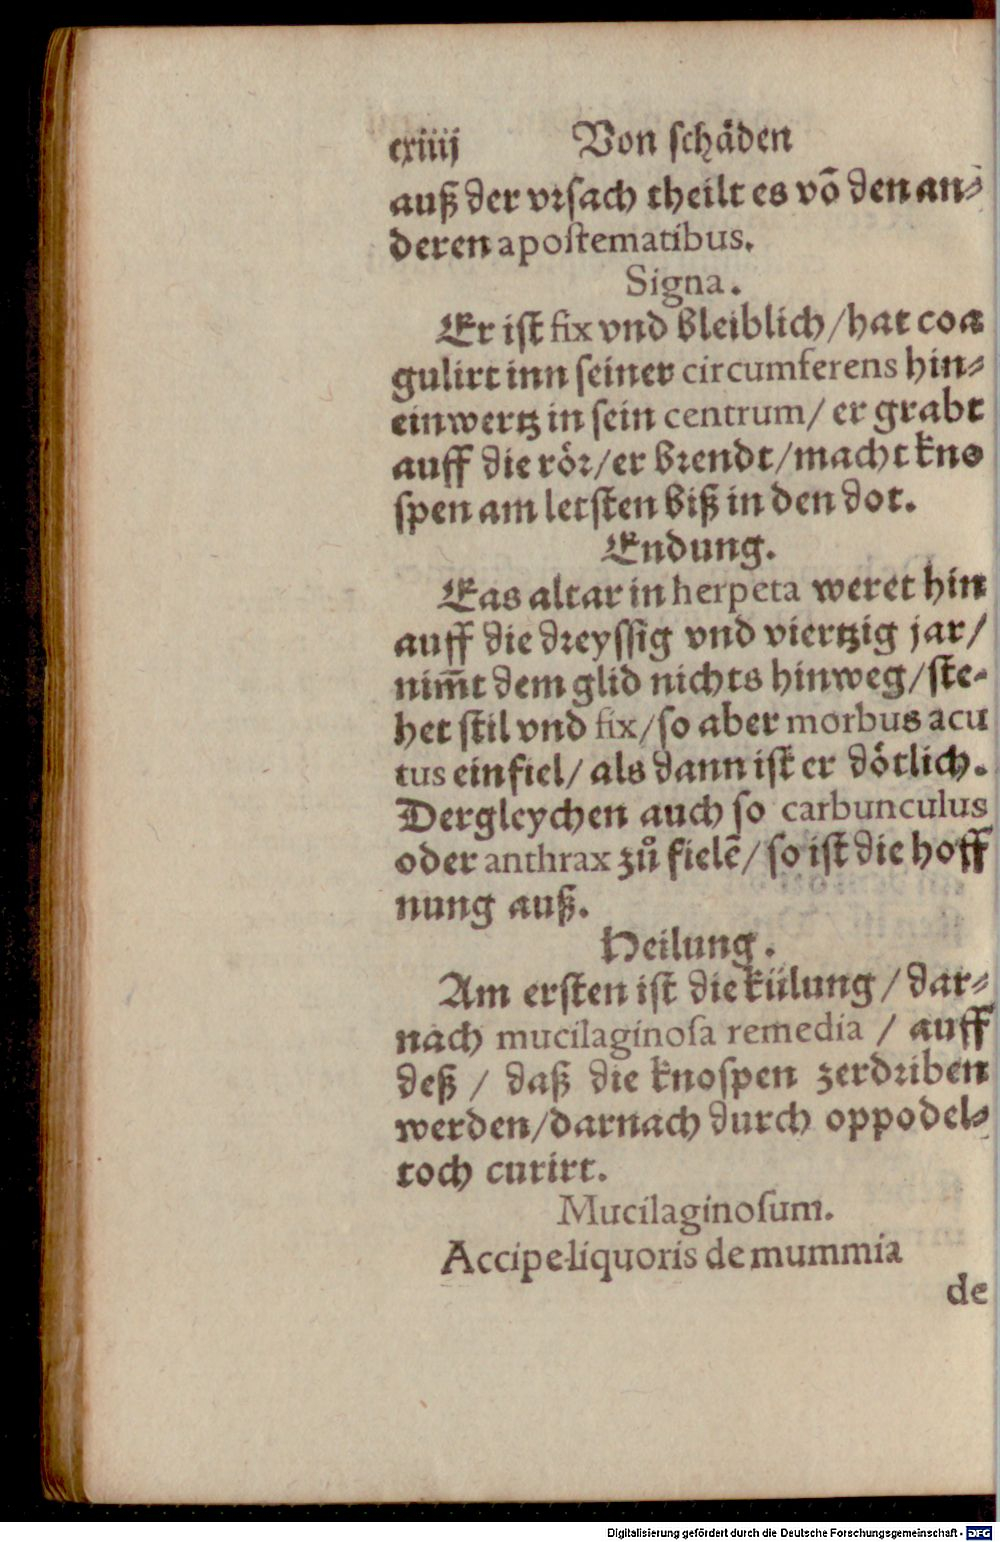 cxiiij Von schäden
auß der vrsach theilt es võ den an⸗
deren apostematibus.
Signa.
Er ist fix vnd bleiblich/hat coa
gulirt inn seiner circumferens hin⸗
einwertz in sein centrum/ er grabt
auff die rör/er brendt/macht kno
spen am letsten biß in den dot.
Endung.
Eas altar in herpeta weret hin
auff die dreyssig vnd viertzig jar/
nim̃t dem glid nichts hinweg/ste⸗
het stil vnd fix/so aber morbus acu
tus einfiel/ als dann ist er dötlich.
Dergleychen auch so carbunculus
oder anthrax zů fielẽ/ so ist die hoff
nung auß.
Heilung.
Am ersten ist die külung/dar⸗
nach mucilaginosa remedia / auff
deß / daß die knospen zerdriben
werden/darnach durch oppodel⸗
toch curirt.
Mucilaginosum.
Accipe liquoris de mummia
de
Digitalisierung gefördert durch die Deutsche Forschungsgemeinschaft - DFG